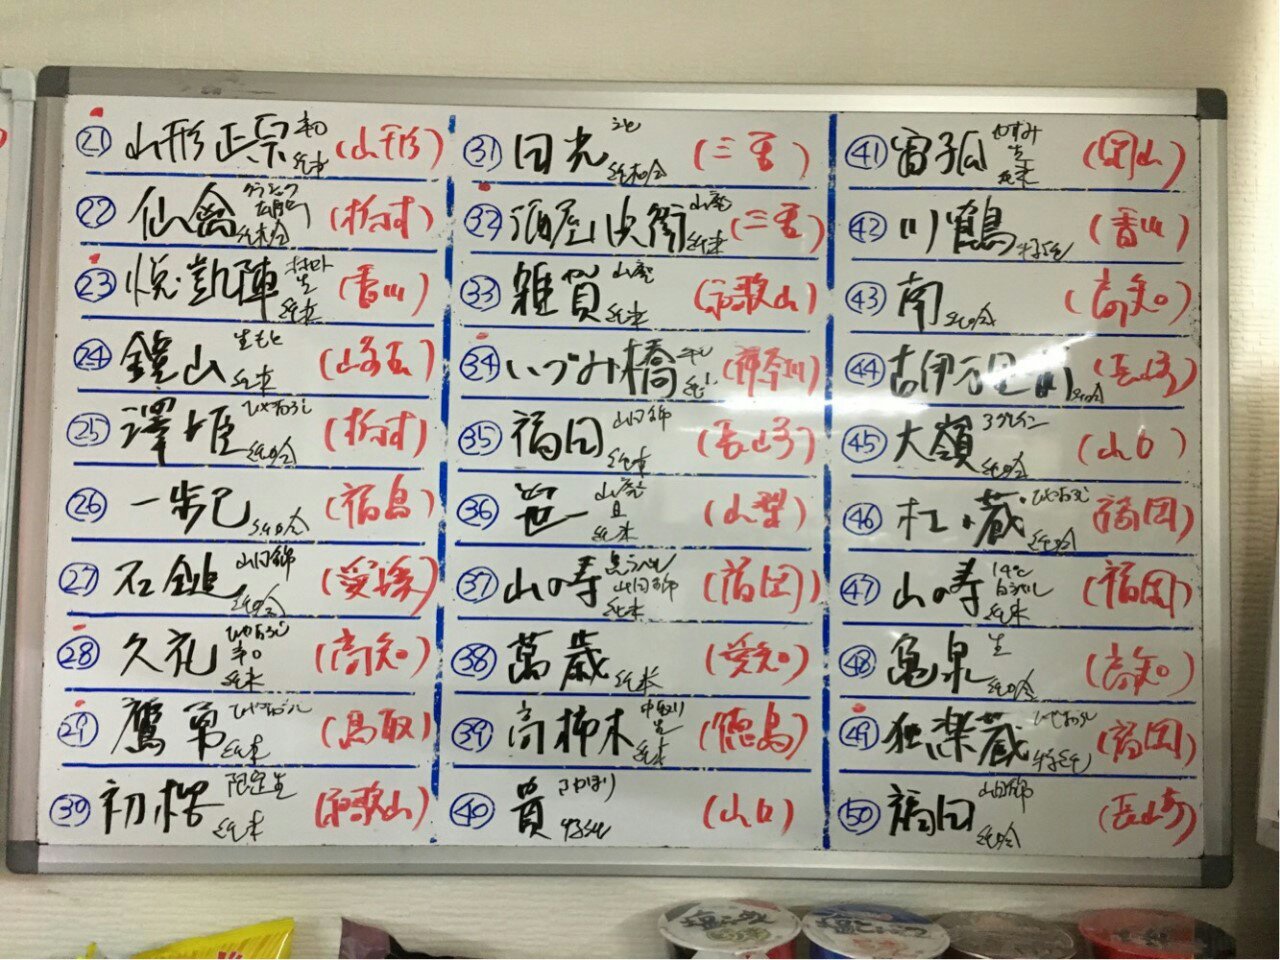 ㉑ 山形正宗 辛口 純米 (山形)
㉒ 仙禽 純米吟 (栃木)
㉓ 悦凱陣 生 純米 (香川)
㉔ 鏡山 生もと 純米 (埼玉)
㉕ 澤姫 ひやおろし 純吟 (栃木)
㉖ 一歩己 純吟 (福島)
㉗ 石鎚 山田錦 純吟 (愛媛)
㉘ 久礼 ひやおろし 辛口 純米 (高知)
㉙ 鷹勇 ひやおろし 純米 (鳥取)
㉚ 初桜 限定生 純米 (和歌山)
㉛ 田光 純米吟 (三重)
㉜ 酒屋八兵衛 山廃 純米 (三重)
㉝ 雑賀 山廃 純米 (和歌山)
㉞ いづみ橋 (神奈川)
㉟ 福田 山田錦 純米 (長崎)
㊱ 笹一 山廃 純米 (山梨)
㊲ 山の寿 山田錦 純米 (福岡)
㊳ 萬歳 純米 (愛知)
㊴ 高柿木 中取り 生 純米 (徳島)
㊵ 貴 特純 (山口)
㊶ 雷子 生 純米 (岡山)
㊷ 川鶴 特純 (香川)
㊸ 南 純吟 (高知)
㊹ 古伊万里 前 純吟 (長崎)
㊺ 大嶺 3グレイン 純吟 (山口)
㊻ 杜の蔵 ひやおろし 純吟 (福岡)
㊼ 山の寿 14℃ 白ラベル 純米 (福岡)
㊽ 亀泉 生 純吟 (高知)
㊾ 独楽蔵 ひやおろし 特純 (福岡)
㊿ 福田 山田錦 純吟 (長崎)